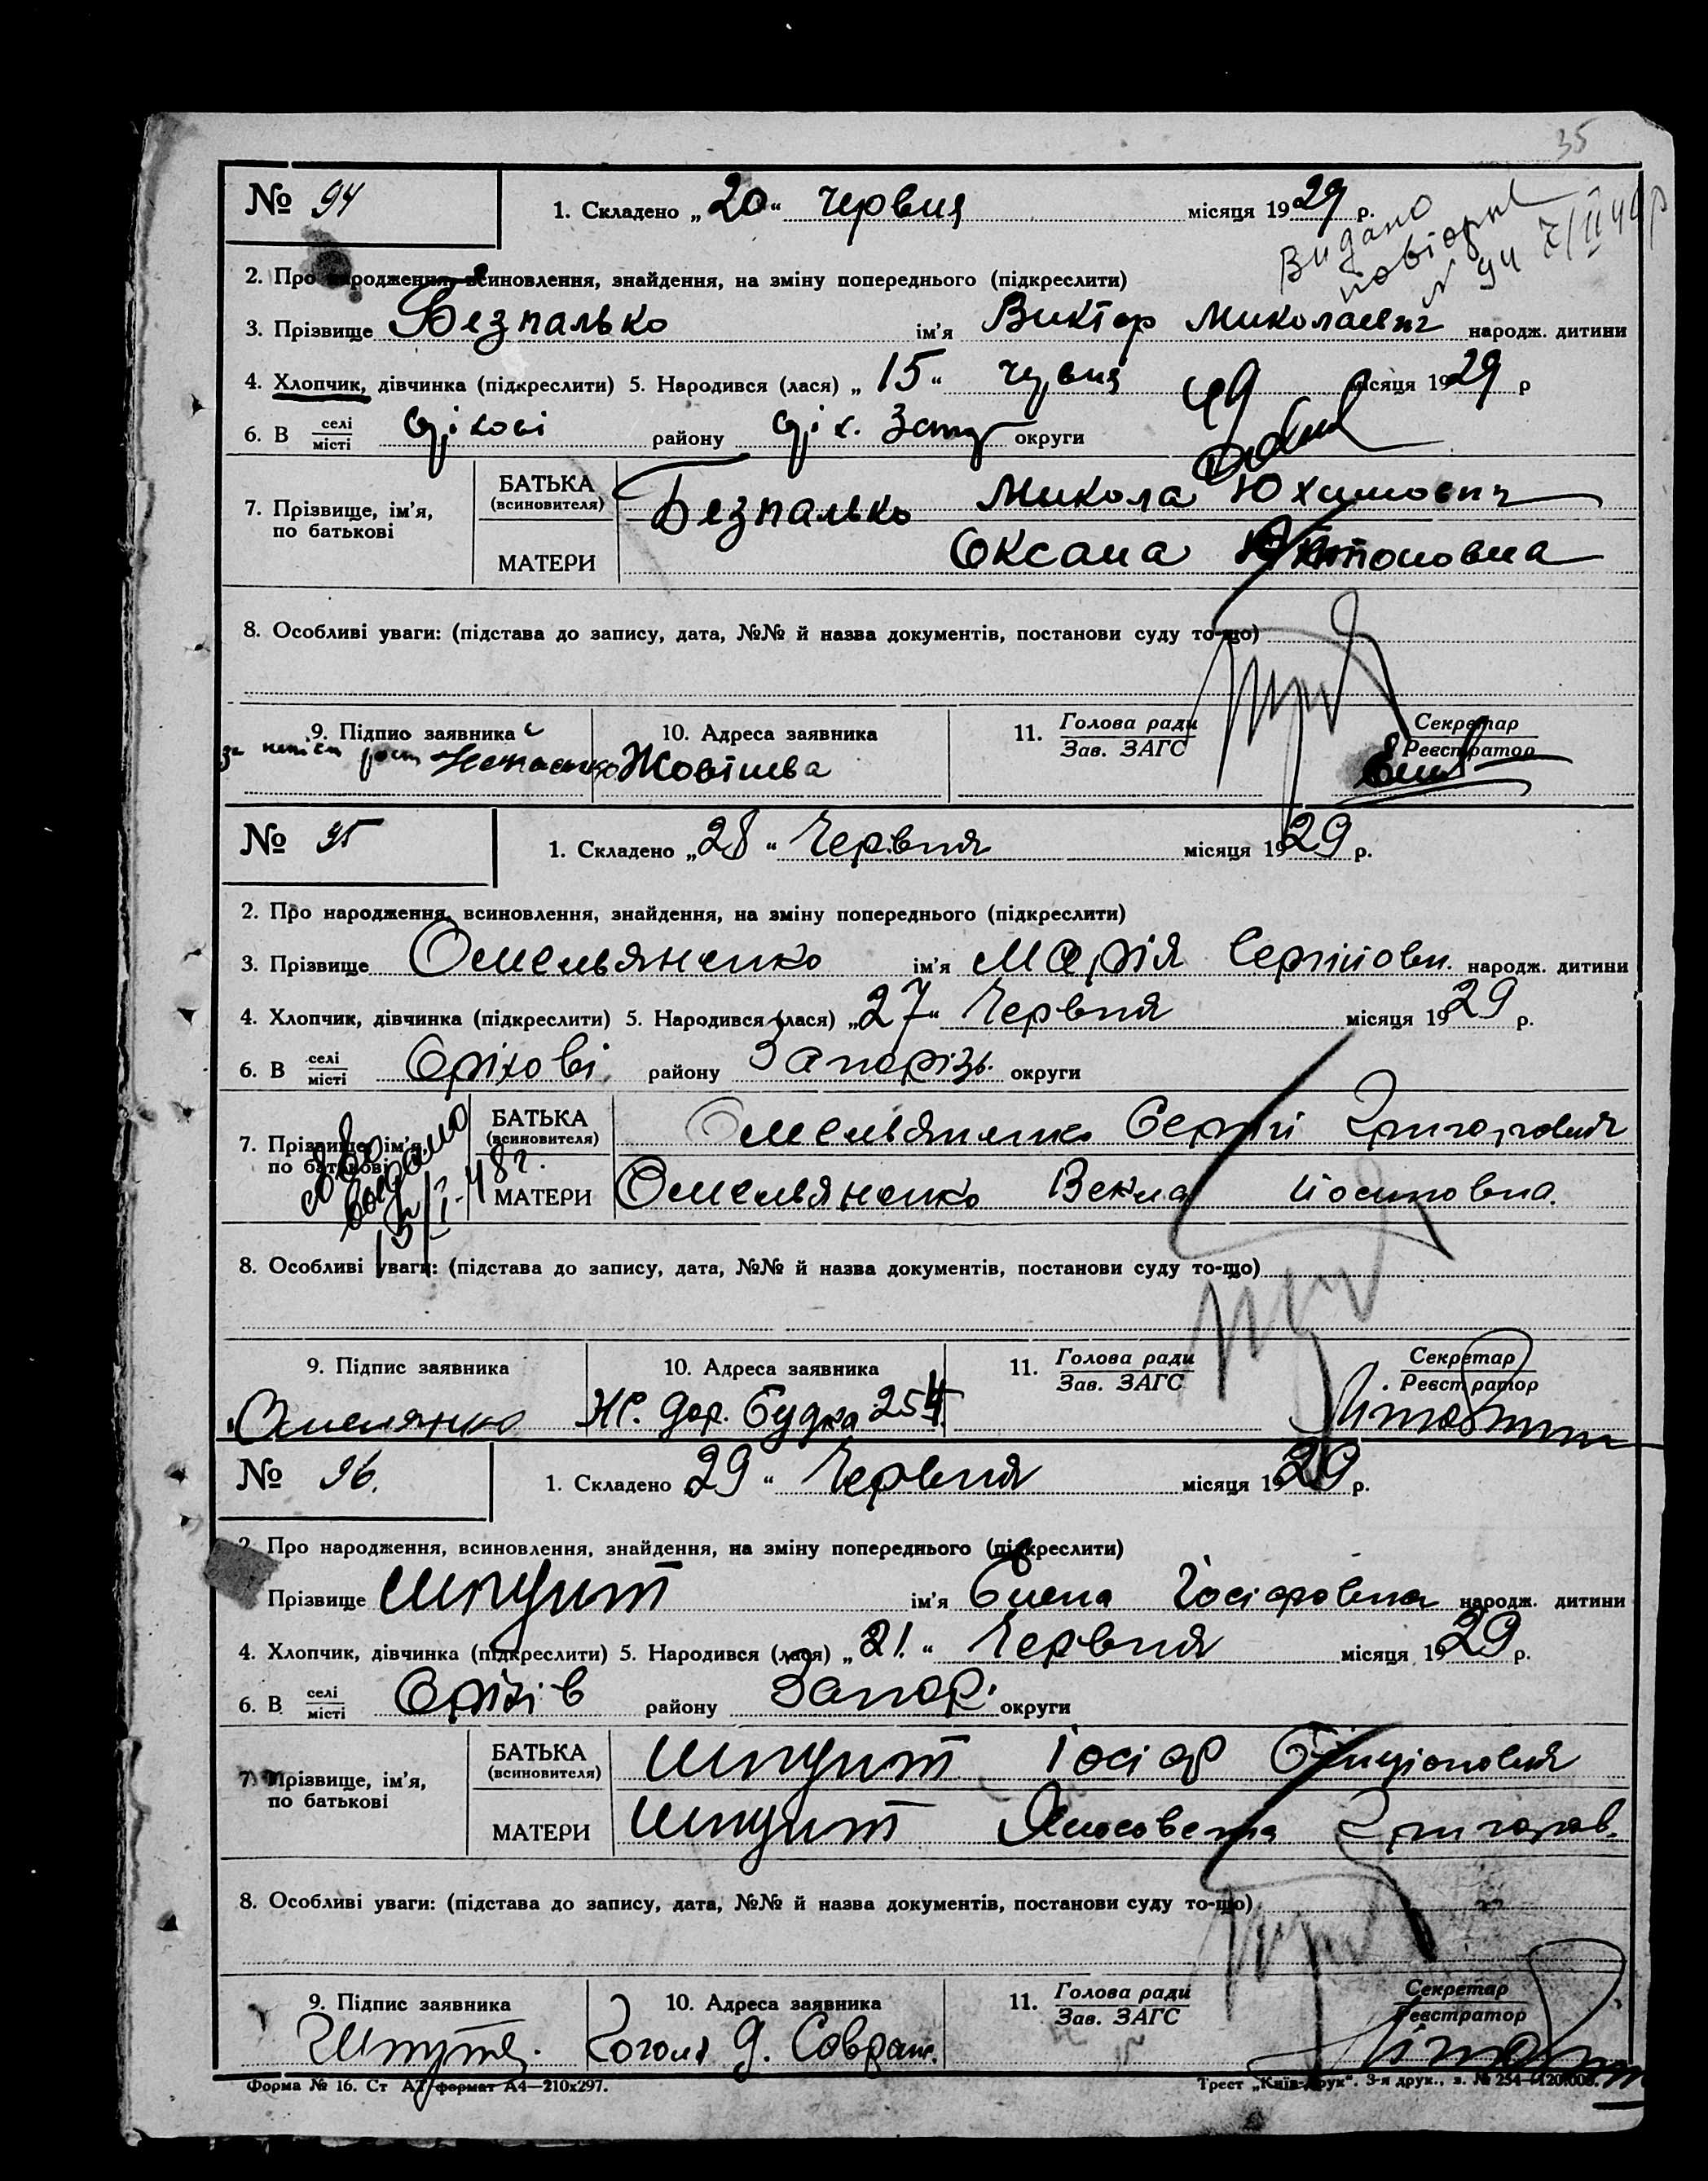 35
№ 94
1. Складено „20“ червня місяця 1929 р.
Видано
повторне
2. Про народження, всиновлення, знайдення, на зміну попереднього (підкреслити)
3. Прізвище Безпалько ім'я Виктор Миколаевич народж. дитини
4. Хлопчик, дівчинка (підкреслити) 5. Народився (лася) „15“ червня місяця 1929 р
6. В селі місті Оріхові району Оріх. Запор округи
7. Прізвище, ім'я, по батькові
БАТЬКА (всиновителя) Безпалько Микола Юхимович
МАТЕРИ Оксана Антоновна
8. Особливі уваги: (підстава до запису, дата, №№ й назва документів, постанови суду то-що)
9. Підпис заявника 10. Адреса заявника 11. Голова ради Зав. ЗАГС Секретар Реєстратор
№ 95
1. Складено „28“ Червня місяця 1929 р.
2. Про народження, всиновлення, знайдення, на зміну попереднього (підкреслити)
3. Прізвище Омельяненко ім'я Марія Сергійовн. народж. дитини
4. Хлопчик, дівчинка (підкреслити) 5. Народився (лася) „27“ Червня місяця 1929 р.
6. В селі місті Оріхові району Запорізь. округи
7. Прізвище, ім'я, по батькові
БАТЬКА (всиновителя) Омельяненко Сергій Григорович
МАТЕРИ Омельяненко Векла Йосиповна.
8. Особливі уваги: (підстава до запису, дата, №№ й назва документів, постанови суду то-що)
9. Підпис заявника 10. Адреса заявника 11. Голова ради Зав. ЗАГС Секретар Реєстратор
Омелянко Жел. дор. Будка 254
№ 96.
1. Складено 29“ Червня місяця 1929 р.
2. Про народження, всиновлення, знайдення, на зміну попереднього (підкреслити)
Прізвище Шпунт ім'я Елена Іосіфовна народж. дитини
4. Хлопчик, дівчинка (підкреслити) 5. Народився (лася) „21.“ Червня місяця 1929 р.
6. В селі місті Оріхів району Запор. округи
7. Прізвище, ім'я, по батькові
БАТЬКА (всиновителя) Шпунт Іосіф
МАТЕРИ Шпунт Григоров.
8. Особливі уваги: (підстава до запису, дата, №№ й назва документів, постанови суду то-що)
9. Підпис заявника 10. Адреса заявника 11. Голова ради Зав. ЗАГС Секретар Реєстратор
Гоголя д. Совран.
Форма № 16. Ст А7 формат А4—210х297. Трест „Київ-Друк“. 3-я друк., з. № 254—120.000.